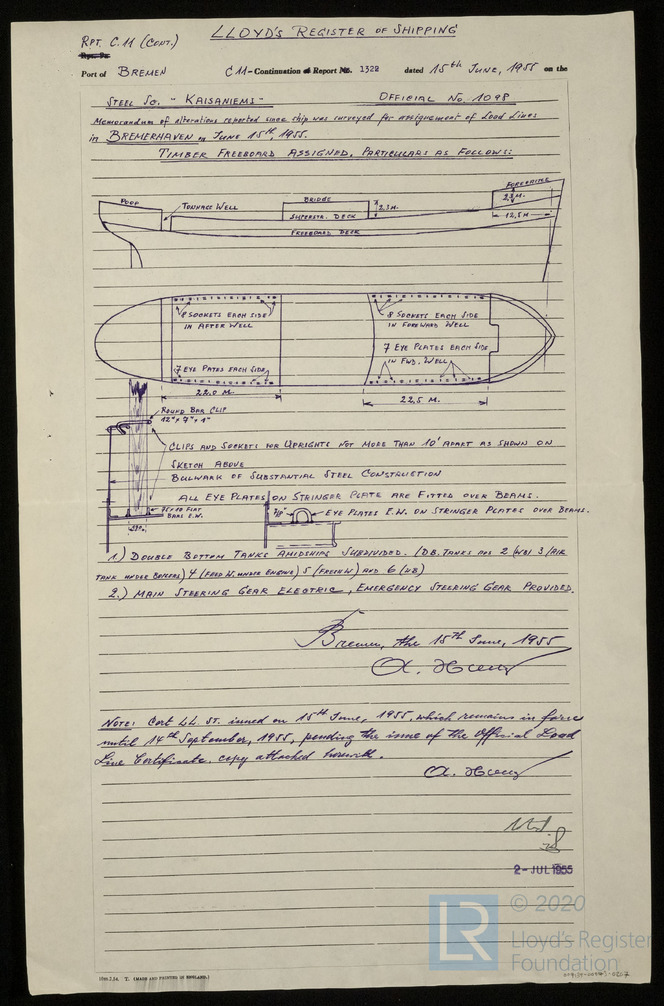 LLOYD'S REGISTER OF SHIPPING
RPT. C.11 (CONT.)
Port of BREMEN C11-Continuation of Report No. 1322 dated 15th JUNE, 1955 on the
STEEL SC. "KAISANIEMI" OFFICIAL NO. 1098
Memorandum of alterations reported since ship was surveyed for assignement of Load Lines
in BREMERHAVEN on JUNE 15th, 1955.
TIMBER FREEBOARD ASSIGNED, PARTICULARS AS FOLLOWS:
POOP
TONNAGE WELL
BRIDGE
SUPERSTR. DECK
2,3 M.
FREEBOARD DECK
FORECASTLE
2,3 M.
12,5 M.
8 SOCKETS EACH SIDE
IN AFTER WELL
8 SOCKETS EACH SIDE
IN FOREWARD WELL
7 EYE PLATES EACH SIDE
IN FWD. WELL
7 EYE PLATES EACH SIDE
22.0 M.
22.5 M.
ROUND BAR CLIP
12" x 7" x 1"
CLIPS AND SOCKETS FOR UPRIGHTS NOT MORE THAN 10' APART AS SHOWN ON
SKETCH ABOVE
BULWARK OF SUBSTANTIAL STEEL CONSTRUCTION
ALL EYE PLATES ON STRINGER PLATE ARE FITTED OVER BEAMS.
EYE PLATES E.W. ON STRINGER PLATES OVER BEAMS.
75 x 10 FLAT
BARS E.W.
1.) DOUBLE BOTTOM TANKS AMIDSHIPS SUBDIVIDED. (DB. TANKS NOS 2 (WB) 3 (AIR
TANK UNDER BOILERS) 4 (FEED W. UNDER ENGINE) 5 (FRESH W) AND 6 (WB)
2.) MAIN STEERING GEAR ELECTRIC, EMERGENCY STEERING GEAR PROVIDED.
Bremen, the 15TH June, 1955
NOTE: Cert LL. ST. issued on 15th June, 1955, which remains in force
until 14th September, 1955, pending the issue of the Official Load
Line Certificate. copy attached herewith.
2-JUL 1955
LR
© 2020
Lloyd's Register
Foundation
T. (MADE AND PRINTED IN ENGLAND.)